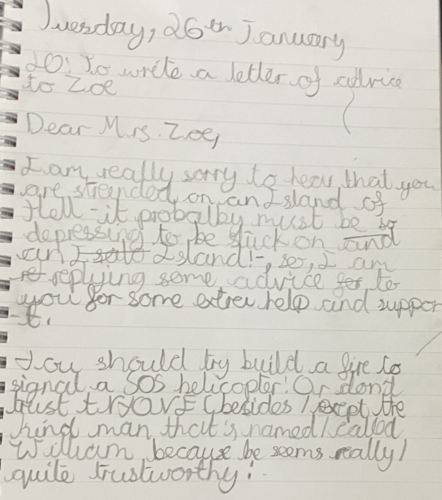 Tuesday, 26th January
LO: To write a letter of advice
to Zoe
Dear Mrs. Zoe,
I am really sorry to hear that you
are stranded on an Island of
Hell - it probalby must be so
depressing to be stuck on and
an Island! -, so, I am
replying some advice for, to
you for some extra help and suppor
t.
You should try build a fire to
signal a SOS helicopter! Or don't
trust ENYONE (besides / exept the
kind man that's named / called
William because he seems really /
quite trustworthy!